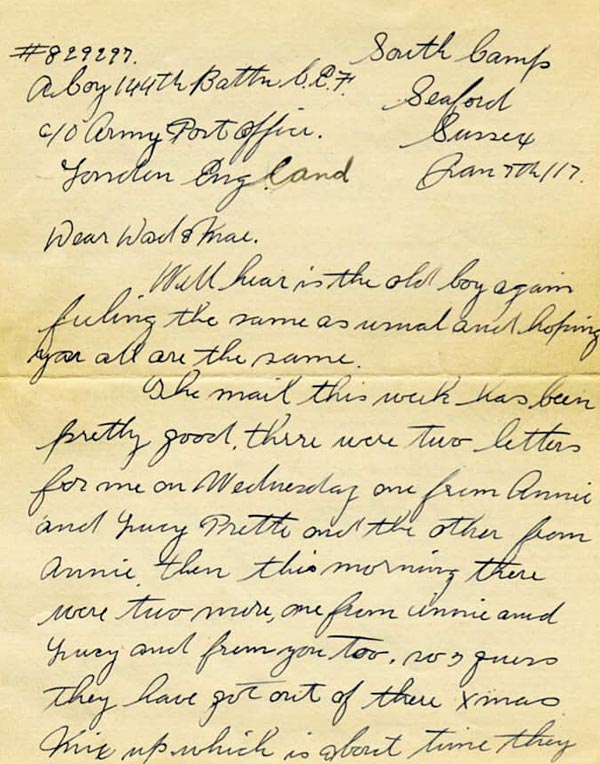 #829297. South Camp
A Coy 144th Battn C.E.F. Seaford
c/o Army Post Office. Sussex
London England Jan 7th/17.
Dear Dad & Mae.
Well hear is the old boy again
feeling the same as usual and hoping
you all are the same.
The mail this week has been
pretty good, there were two letters
for me on Wednesday one from Annie
and Lucy and the other from
Annie, then this morning there
were two more, one from Annie and
Lucy and from you too, so I guess
they have got out of there Xmas
mix up which is about time they